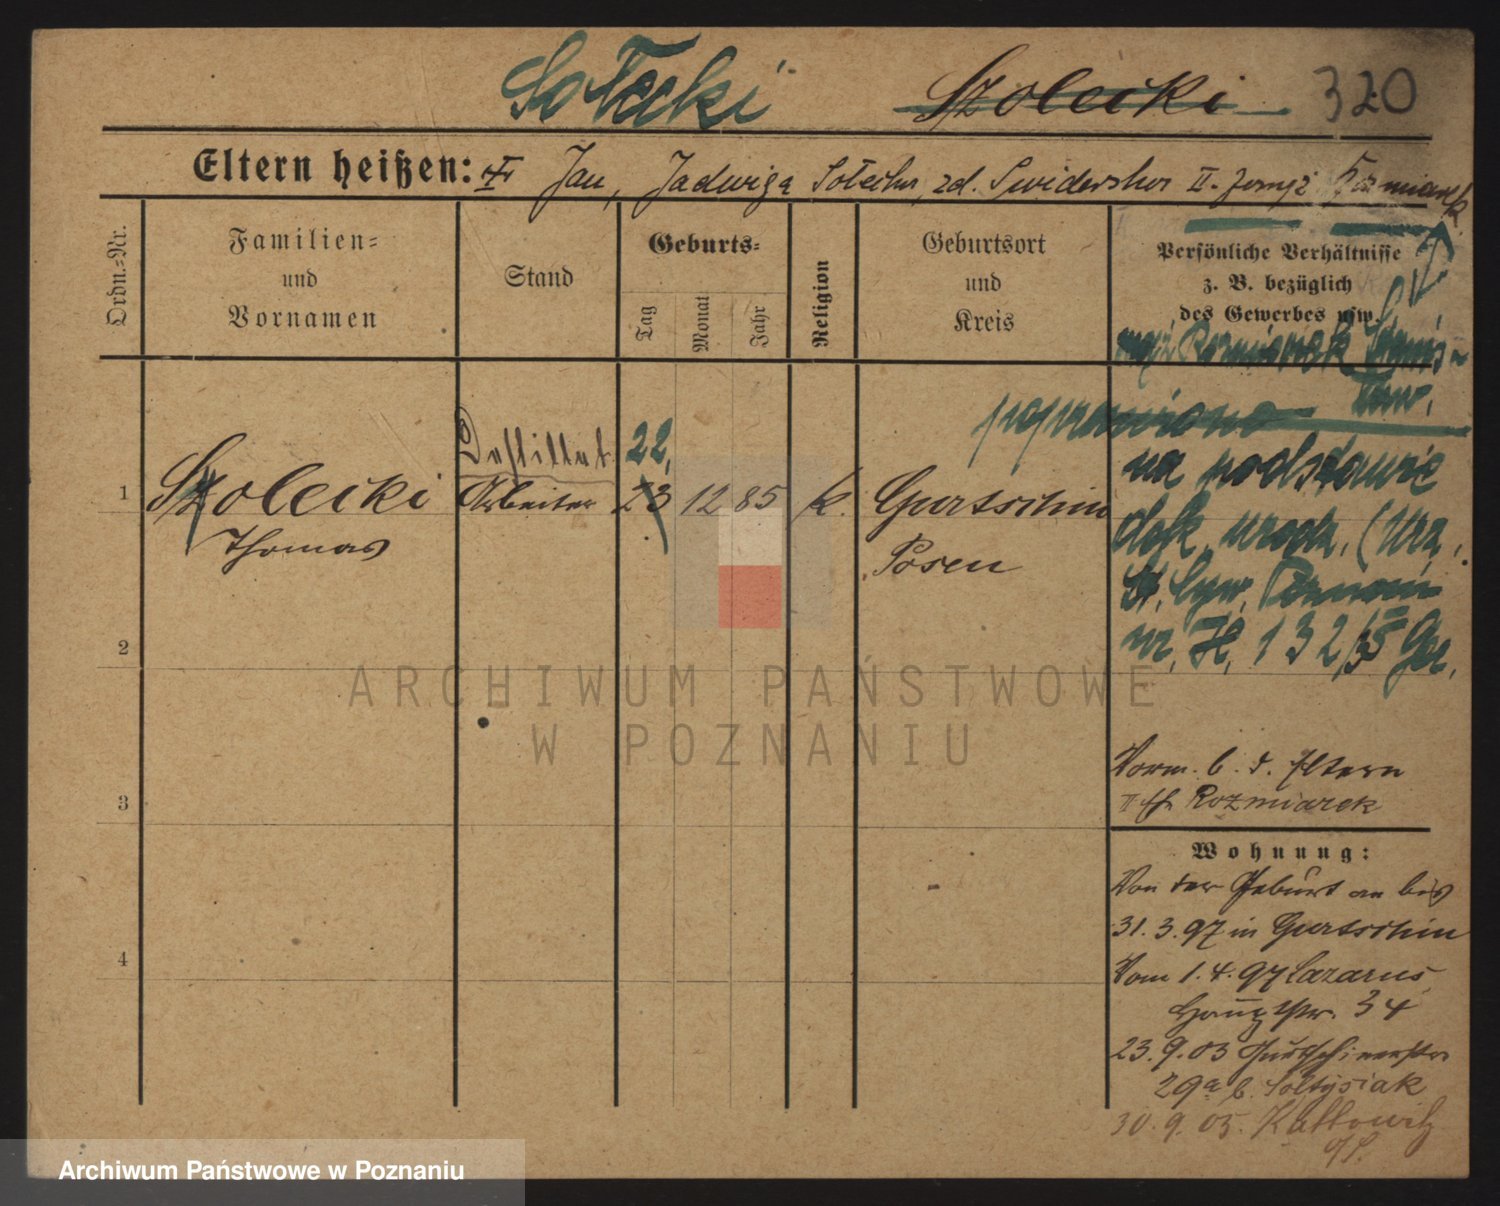 Sołecki Szolecki 320
Eltern heißen: Jan, Jadwiga Sołecka, zd. Swiderska II. Rozmiarek
Ordn.-Nr.
Familien-
und
Vornamen
Stand
Geburts-
Tag
Monat
Jahr
Religion
Geburtsort
und
Kreis
Persönliche Verhältnisse
z. B. bezüglich
des Gewerbes usw.
mąż Rozmiarek Stanis-
ław.
poprawiono
na podstawie
dok. urodz. (Urz.
St. Cyw. Poznań
nr. 132/
1 Szolecki
Thomas
Destillat.
Arbeiter
22,
23 12 85 k. Gurtschin
Posen
2
3
4
Vorm. b. d. Eltern
II Rozmiarek
Wohnung:
Von der Geburt an bis
31. 3. 97 in Gurtschin
Vom 1. 4. 97 Lazarus
Hauptstr. 34
23. 9. 03 Gurtschinerstr.
29a b. Soltysiak
30. 9. 05. Kattowitz
ARCHIWUM PAŃSTWOWE
W POZNANIU
Archiwum Państwowe w Poznaniu